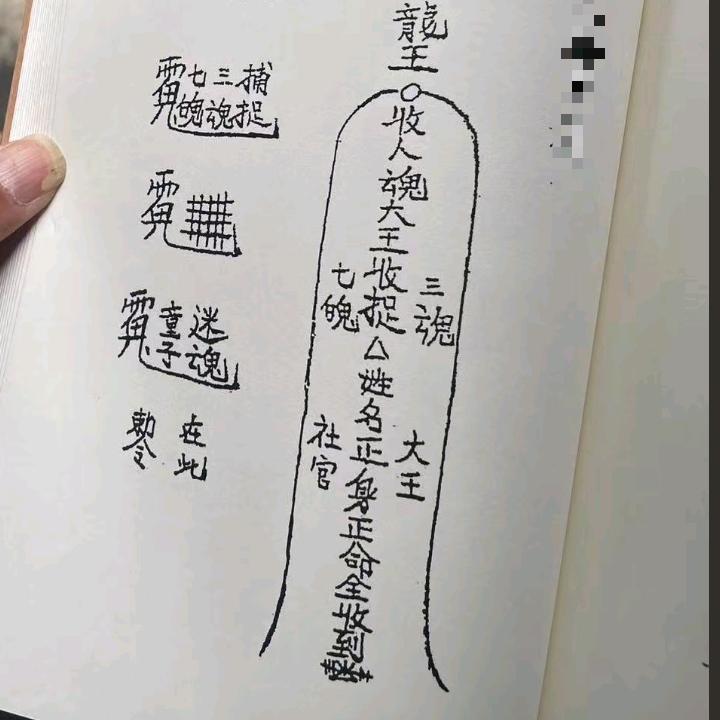 龍王
收人魂大王收捉△姓名正身正命全收到
三魂
七魄
大王
社官
捕捉
三魂
七魄
迷魂
童子
在此
敕令